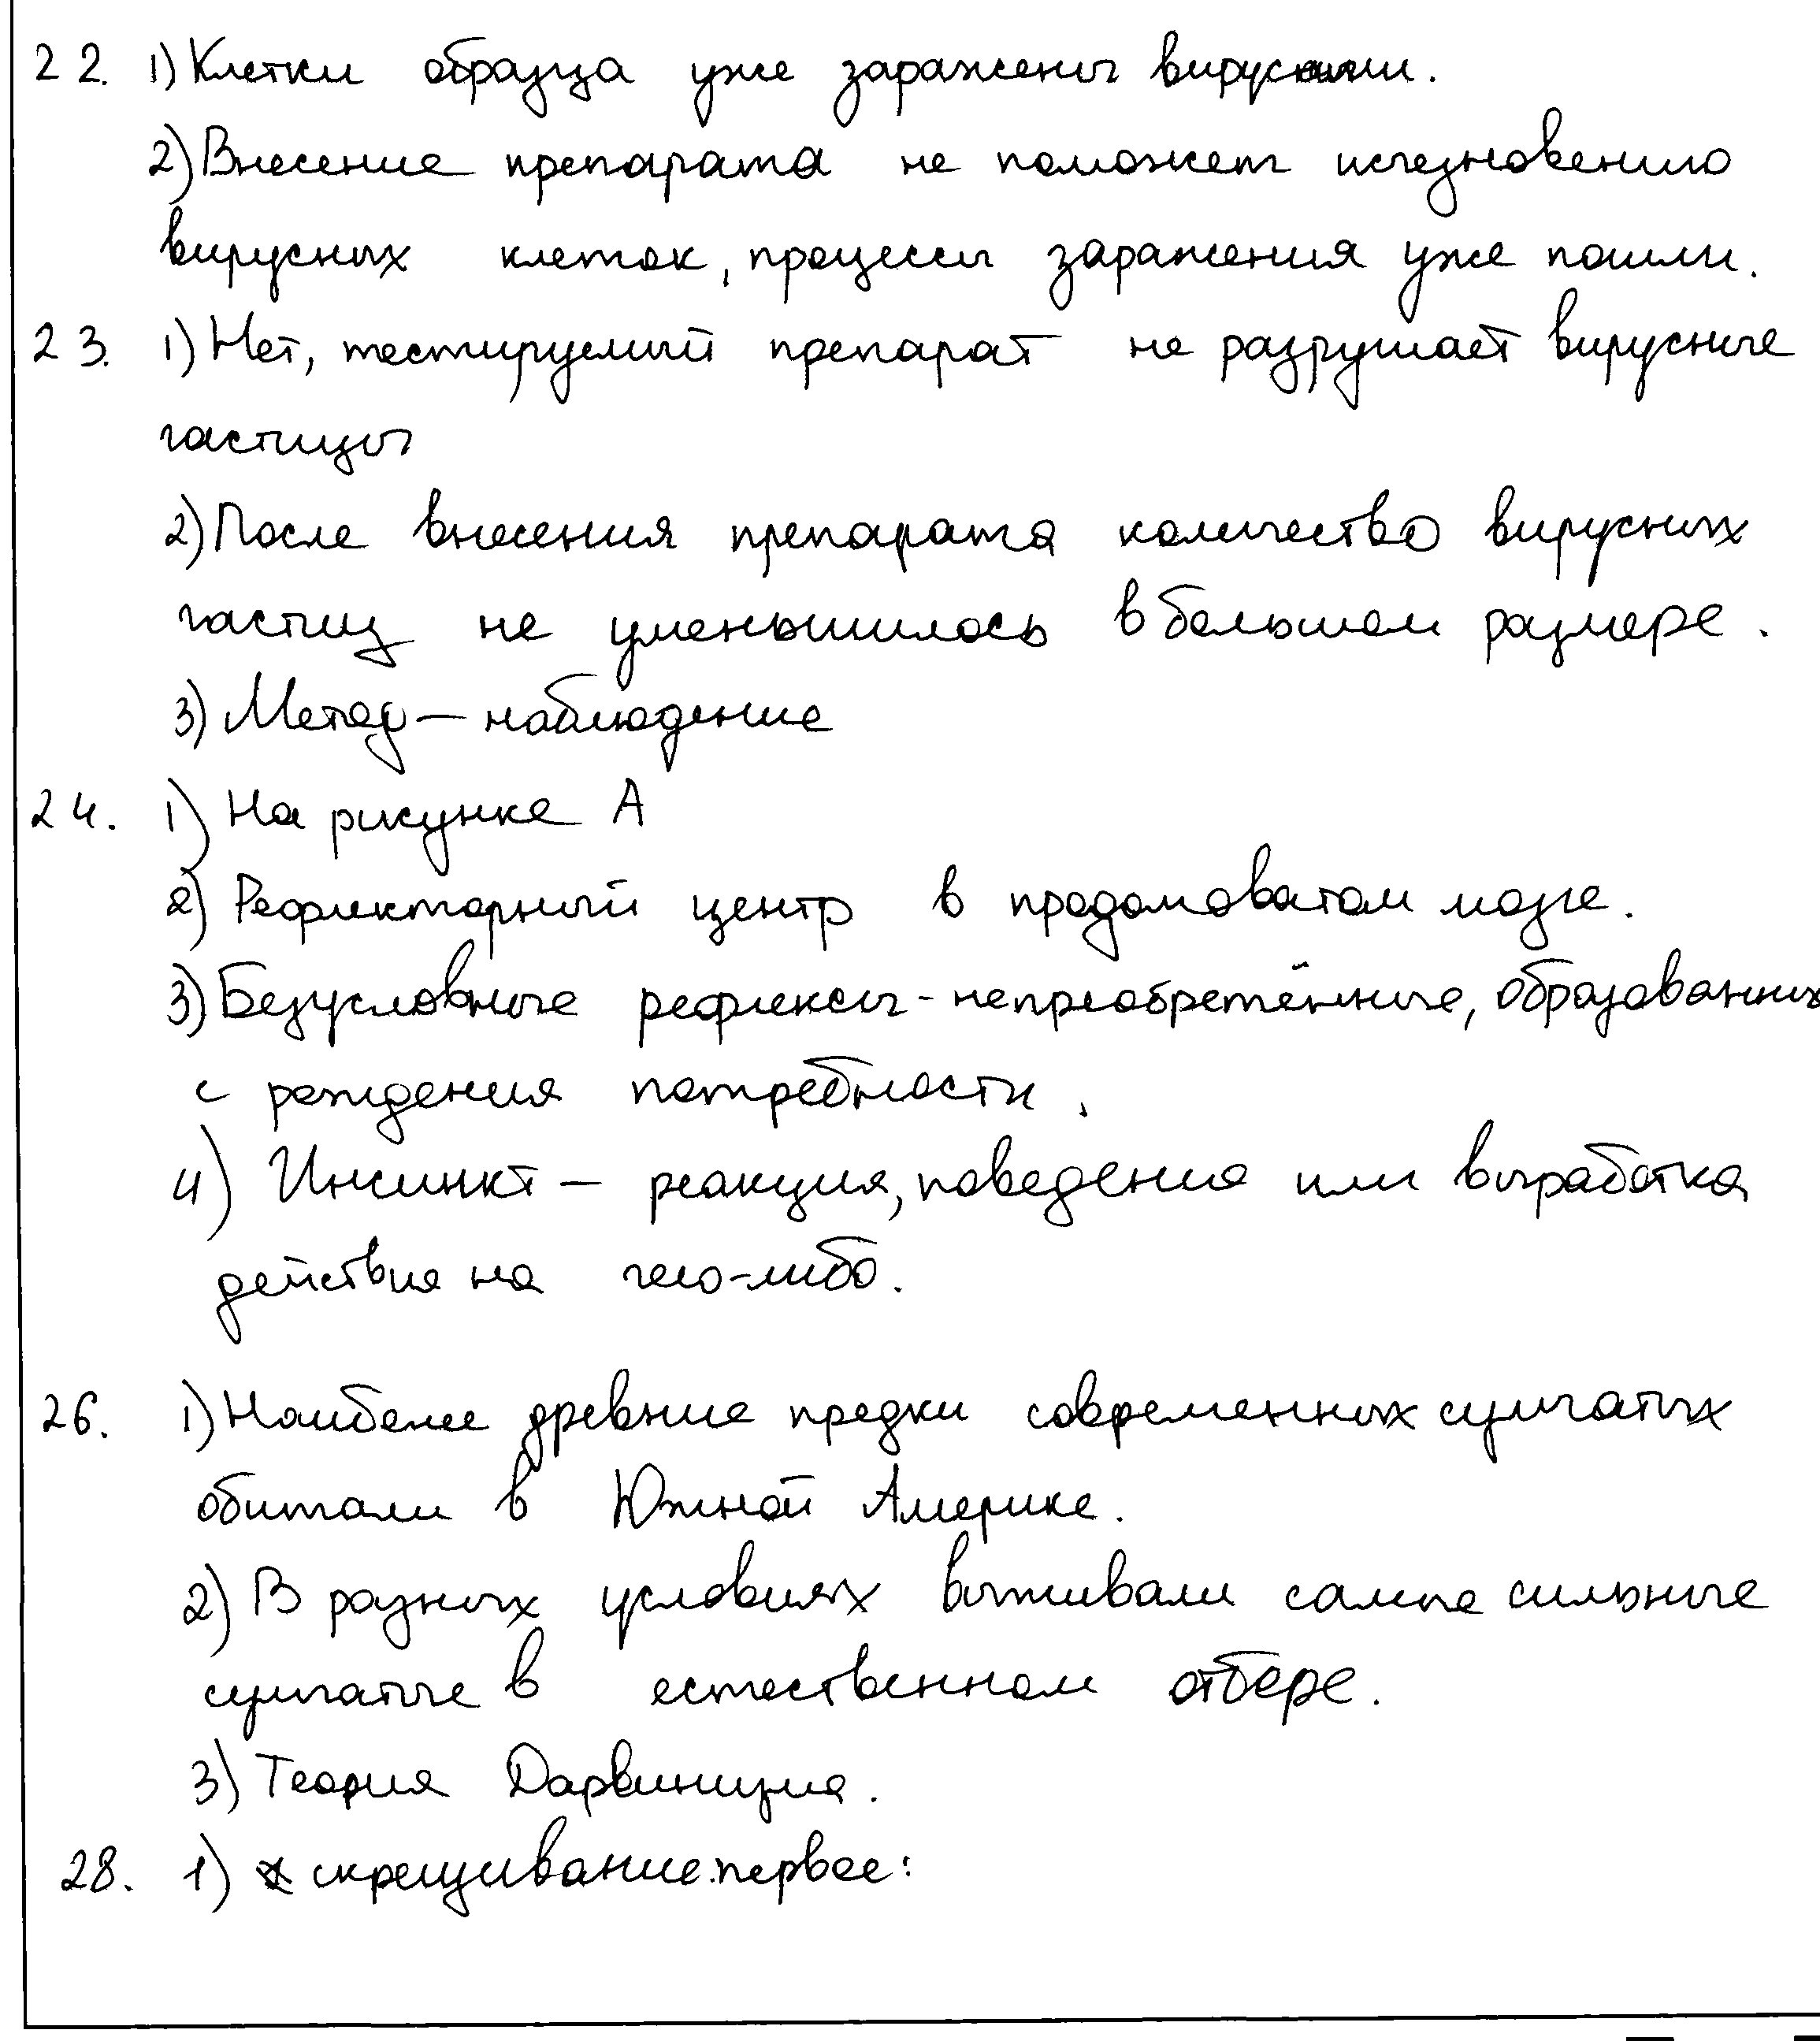 22. 1) Клетки образца уже заражены вирусными.
2) Внесение препарата не поможет исчезновению
вирусных клеток, процессы заражения уже пошли.
23. 1) Нет, тестируемый препарат не разрушает вирусные
частицы
2) После внесения препарата количество вирусных
частиц не уменьшилось в большем размере.
3) Метод – наблюдение
24. 1) На рисунке А
2) Рефлекторный центр в продолговатом мозге.
3) Безусловные рефлексы - неприобретённые, образованных
с рождения потребности.
4) Инсинкт – реакция, поведения или выработка
действия на чего-либо.
26. 1) Наиболее древние предки современных сумчатых
обитали в Южной Америке.
2) В разных условиях выживали самые сильные
сумчатые в естественном отборе.
3) Теория Дарвинизма.
28. 1) скрещивание первое: